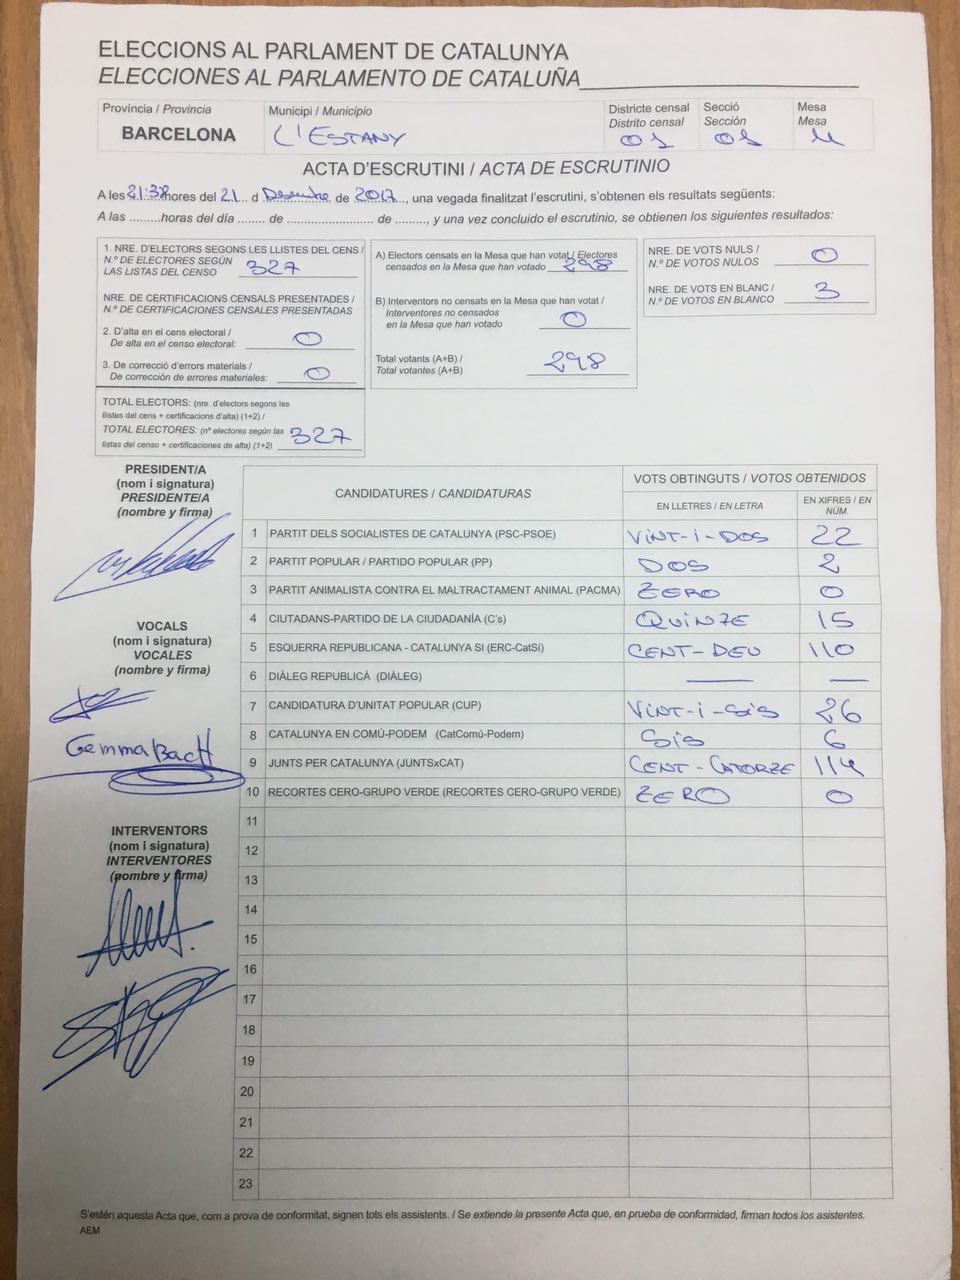 ELECCIONS AL PARLAMENT DE CATALUNYA
ELECCIONES AL PARLAMENTO DE CATALUÑA
Província / Provincia
BARCELONA
Municipi / Municipio
L'ESTANY
Districte censal
Distrito censal
01
Secció
Sección
01
Mesa
Mesa
U
ACTA D'ESCRUTINI / ACTA DE ESCRUTINIO
A les 21:38 hores del 21 d Desembre de 2017, una vegada finalitzat l'escrutini, s'obtenen els resultats següents:
A las .........horas del día ........ de ...................... de ........, y una vez concluido el escrutinio, se obtienen los siguientes resultados:
1. NRE. D'ELECTORS SEGONS LES LLISTES DEL CENS /
N.º DE ELECTORES SEGÚN
LAS LISTAS DEL CENSO 327
NRE. DE CERTIFICACIONS CENSALS PRESENTADES /
N.º DE CERTIFICACIONES CENSALES PRESENTADAS
2. D'alta en el cens electoral /
De alta en el censo electoral: 0
3. De correcció d'errors materials /
De corrección de errores materiales: 0
TOTAL ELECTORS: (nre. d'electors segons les
llistes del cens + certificacions d'alta) (1+2) /
TOTAL ELECTORES: (nº electores según las
listas del censo + certificaciones de alta) (1+2) 327
A) Electors censats en la Mesa que han votat / Electores
censados en la Mesa que han votado 298
B) Interventors no censats en la Mesa que han votat /
Interventores no censados
en la Mesa que han votado 0
Total votants (A+B) /
Total votantes (A+B) 298
NRE. DE VOTS NULS /
N.º DE VOTOS NULOS 0
NRE. DE VOTS EN BLANC /
N.º DE VOTOS EN BLANCO 3
PRESIDENT/A
(nom i signatura)
PRESIDENTE/A
(nombre y firma)
VOCALS
(nom i signatura)
VOCALES
(nombre y firma)
Gemma Bach
INTERVENTORS
(nom i signatura)
INTERVENTORES
(nombre y firma)
CANDIDATURES / CANDIDATURAS
VOTS OBTINGUTS / VOTOS OBTENIDOS
EN LLETRES / EN LETRA
EN XIFRES / EN NÚM.
1 PARTIT DELS SOCIALISTES DE CATALUNYA (PSC-PSOE) VINT-I-DOS 22
2 PARTIT POPULAR / PARTIDO POPULAR (PP) DOS 2
3 PARTIT ANIMALISTA CONTRA EL MALTRACTAMENT ANIMAL (PACMA) ZERO 0
4 CIUTADANS-PARTIDO DE LA CIUDADANÍA (C's) QUINZE 15
5 ESQUERRA REPUBLICANA - CATALUNYA SI (ERC-CatSí) CENT-DEU 110
6 DIÀLEG REPUBLICÀ (DIÀLEG) — —
7 CANDIDATURA D'UNITAT POPULAR (CUP) VINT-I-SIS 26
8 CATALUNYA EN COMÚ-PODEM (CatComú-Podem) SIS 6
9 JUNTS PER CATALUNYA (JUNTSxCAT) CENT-CATORZE 114
10 RECORTES CERO-GRUPO VERDE (RECORTES CERO-GRUPO VERDE) ZERO 0
11
12
13
14
15
16
17
18
19
20
21
22
23
S'estén aquesta Acta que, com a prova de conformitat, signen tots els assistents. / Se extiende la presente Acta que, en prueba de conformidad, firman todos los asistentes.
AEM